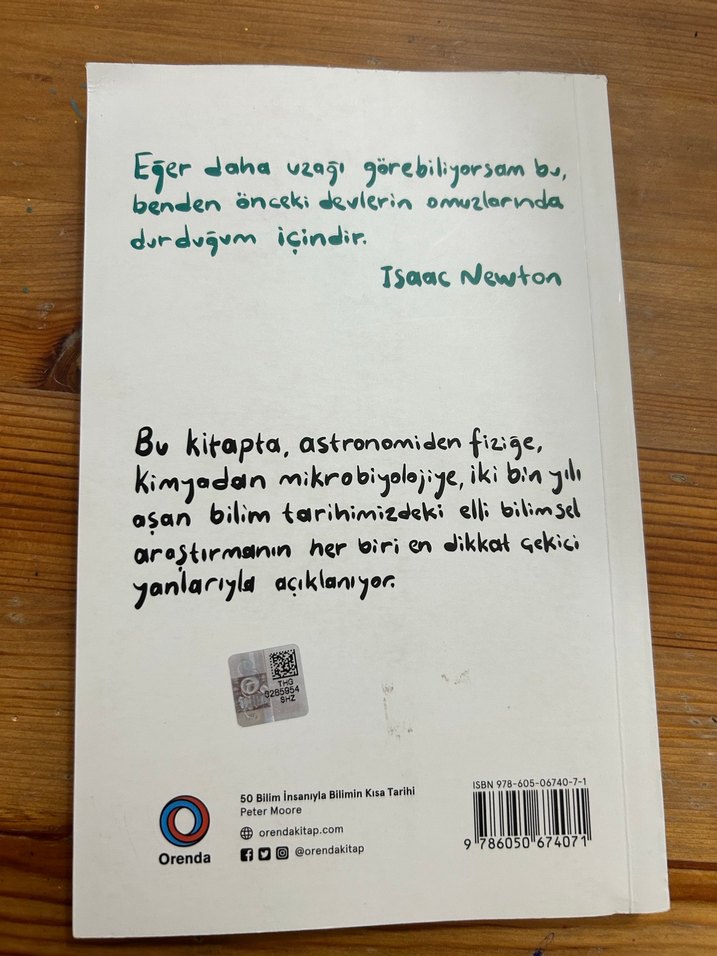 Eğer daha uzağı görebiliyorsam bu,
benden önceki devlerin omuzlarında
durduğum içindir.
Isaac Newton
Bu kitapta, astronomiden fiziğe,
kimyadan mikrobiyolojiye, iki bin yılı
aşan bilim tarihimizdeki elli bilimsel
araştırmanın her biri en dikkat çekici
yanlarıyla açıklanıyor.
THG
0285954
SHZ
Orenda
50 Bilim İnsanıyla Bilimin Kısa Tarihi
Peter Moore
orendakitap.com
@orendakitap
ISBN 978-605-06740-7-1
9 786050 674071